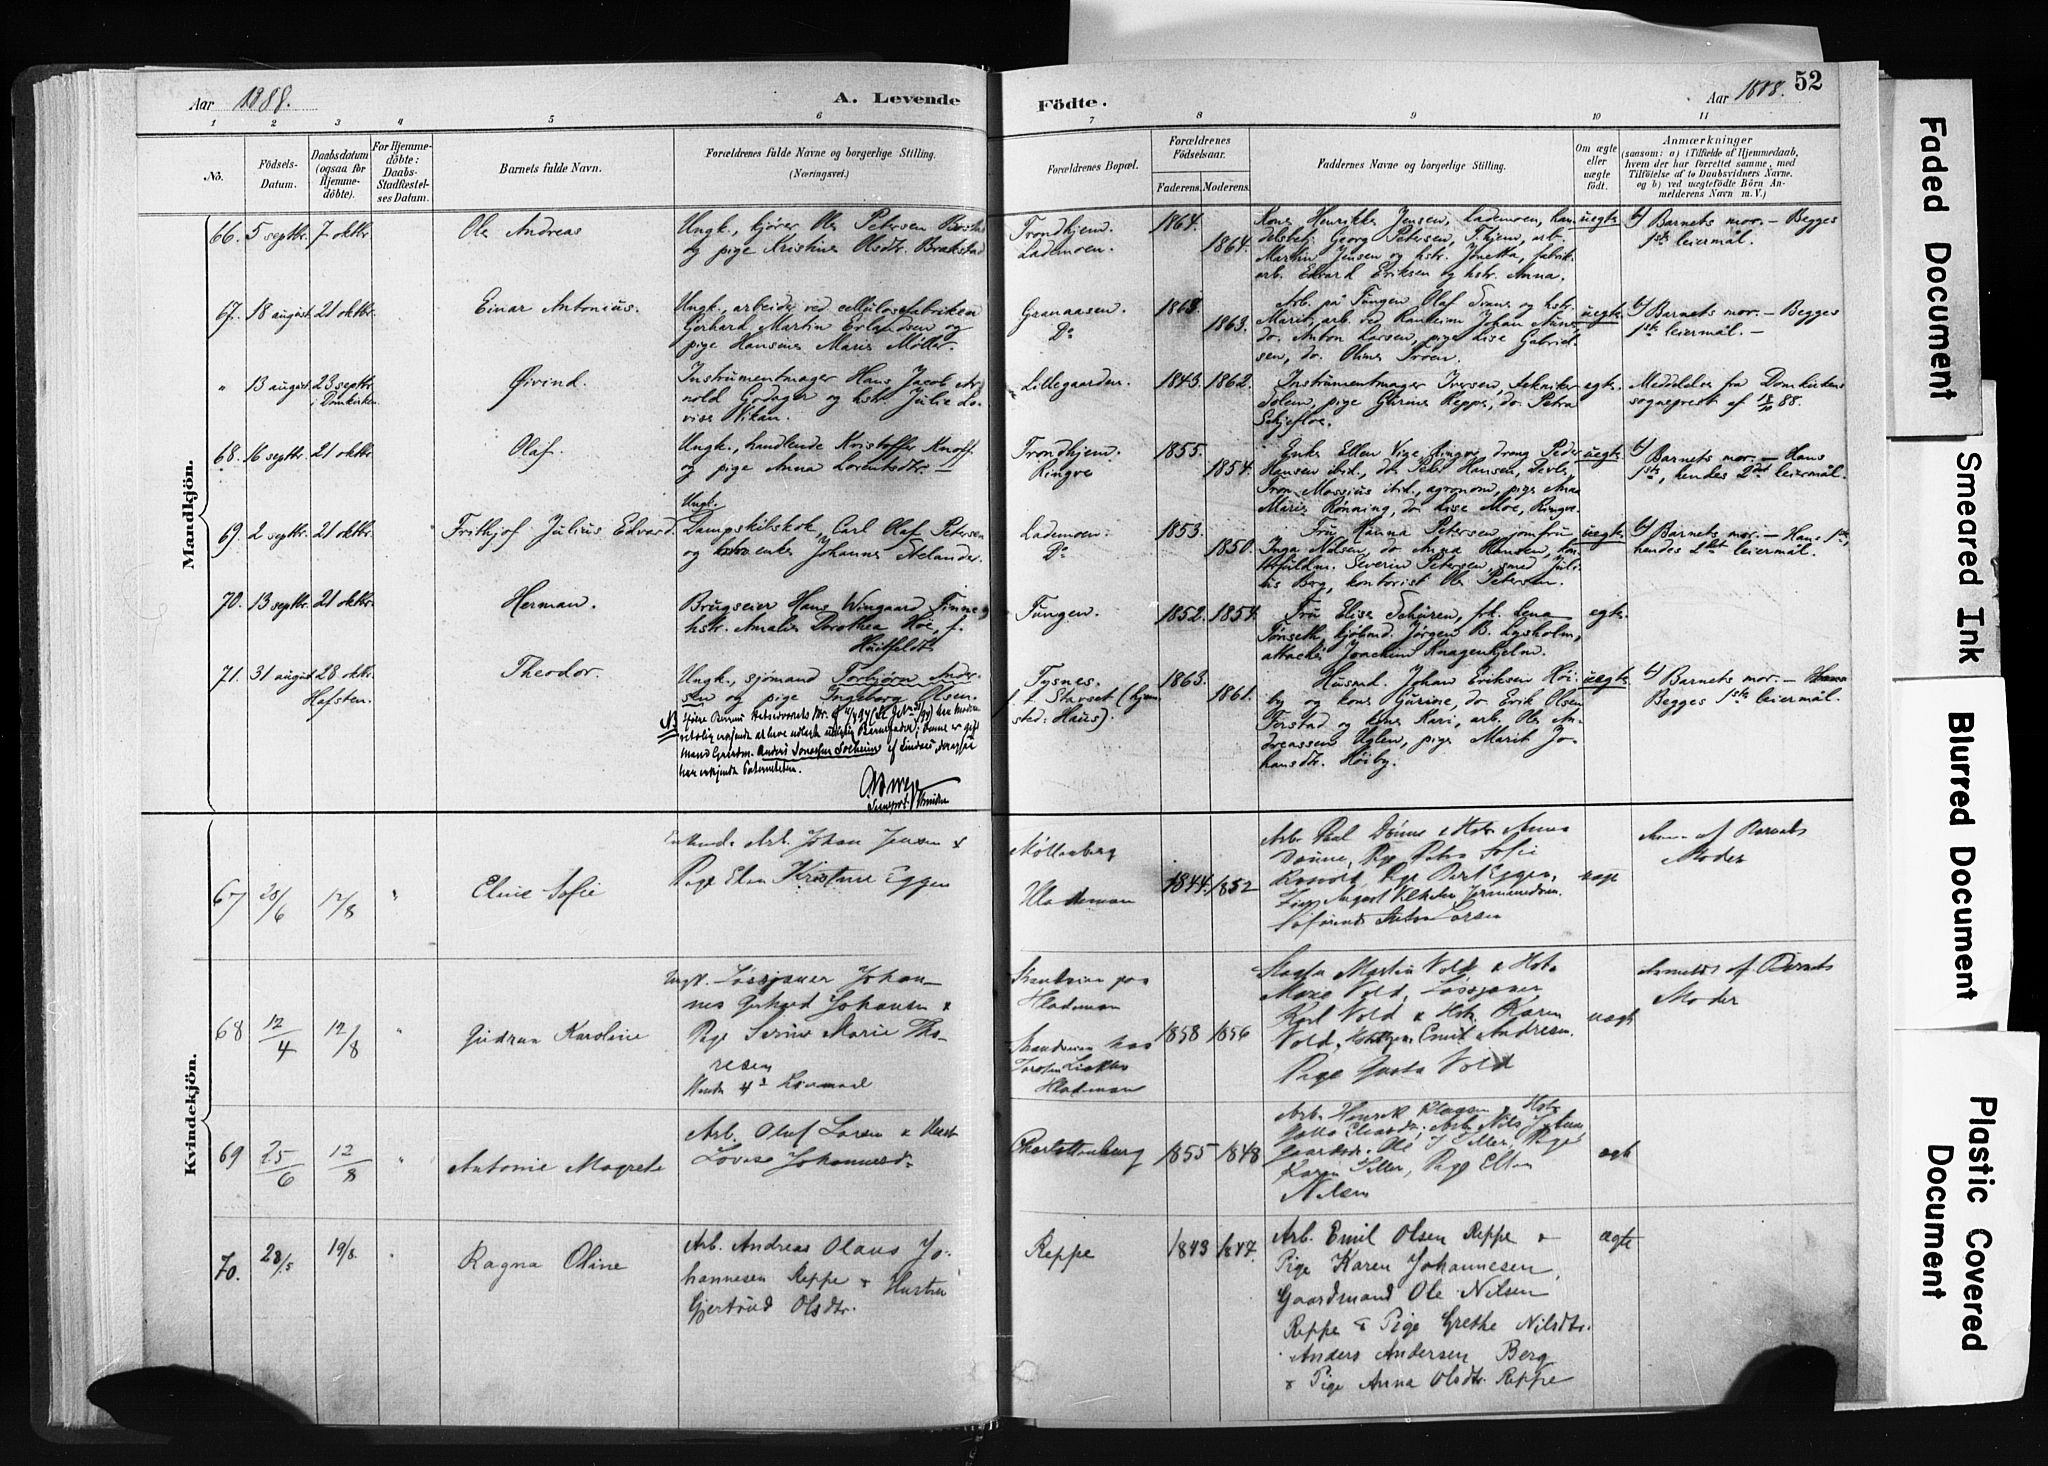 Aar 1888.
A. Levende
Födte.
Aar 1888.
52
1 2 3 4 5 6 7 8 9 10 11
No.
Födsels-
Datum.
Daabsdatum
(ogsaa for
Hjemme-
döbte).
For Hjemme-
döbte:
Daabs-
Stadfæstel-
ses Datum.
Barnets fulde Navn.
Forældrenes fulde Navne og borgerlige Stilling.
(Næringsvei.)
Forældrenes Bopæl.
Forældrenes
Födselsaar.
Faderens.
Moderens.
Faddernes Navne og borgerlige Stilling.
Om ægte
eller
uægte
födt.
Anmærkninger
(saasom: a) i Tilfælde af Hjemmedaab,
hvem der har forrettet samme, med
Tilföielse af to Daabsvidners Navne,
og b) ved uægtefödte Börn An-
melderens Navn m. V.)
Mandkjön.
66. 5 septbr. 7 oktbr.
Ole Andreas
Ungk., kjører Ole Petersen
og pige Kristine Olsdtr.
Trondhjem.
Lademoen.
1864.
1864.
Kone Henrikke Jensen, Lademoen, han-
delsbetj. Georg Petersen, T.hjem, arb.
Martin Jensen og hstr. Jonetta, fabrik-
arb. Edvard Eriksen og hstr. Anna.
uegte
b) Barnets mor. – Begges
1ste leiermål.
67. 18 august 21 oktbr.
Einar Antonius.
Ungk., arbeider ved cellulosefabriken
Gerhard Martin Erlandsen og
pige Hansine Marie Møller.
Granaasen.
Do
1863.
1863.
Arb. på Tungen Olaf og hstr.
Marit, arb. ved Ranheim Johan
do. Anton Larsen, pige Lise Gabriel-
sen, do. Oline Troen.
uegte
b) Barnets mor. – Begges
1ste leiermål. –
" 13 august 23 septbr.
i Domkirken
Øivind.
Instrumentmager Hans Jacob Ar-
nold og hstr. Julie Lo-
vise Vikan.
Lillegaarden.
1843. 1862.
Instrumentmager Iversen, tekniker
Solem, pige Gurine Reppe, do. Petra
Schjefloe.
egte
Meddelelse fra Domkirkens
sogneprest af 18/10 88.
68. 16 septbr. 21 oktbr.
Olaf.
Ungk., handlende Kristoffer Knoff
og pige Anna Lorentsdtr.
Trondhjem.
Ringve
1855.
1854.
Enke Ellen Vige Ringve, dreng Peder
Hansen ibid., do. Peter Hansen,
ibid., agronom, pige Anna
Marie Rønning, do. Lise Moe, Ringve.
uegte
b) Barnets mor. – Hans
1ste, hendes 2det leiermål.
69. 2 septbr. 21 oktbr.
Frithjof Julius Edvard
Ungk.
Dampskibskok Carl Olaf Petersen
og enke Johanne Stelander.
Lademoen.
Do
1853.
1850.
Fru Hanna Petersen, jomfru
Inga Nilsen, do. Anna Hansen,
fuldm. Severin Petersen, smed Juli-
us Berg, kontorist Ole Petersen.
uegte
b) Barnets mor. – Hans 1ste,
hendes leiermål.
70. 13 septbr. 21 oktbr.
Herman.
Brugseier Hans Wingaard Finne og
hstr. Amalie Dorothea Høe, f.
Huitfeldt.
Tungen.
1852. 1854.
Fru Elise Schiren, frk. Lena
Jønseth, kjøbmd. Jørgen B. Lysholm,
attaché Joachim Knagenhjelm.
egte
71. 31 august 28 oktbr.
Hafsten.
Theodor.
Ungk., sjømand Torbjørn Ander-
sen og pige Ingeborg Olsen.
Anders Sjursen Solheim
har erkjendt Paterniteten.
Tysnes.
f. t. Stavset (hjem-
sted: Haus).
1863.
1861.
Husmd. Johan Eriksen Høi-
by og kone Gurine, do. Erik Olsen
Ferstad og kone Kari, arb. Ole An-
dreassen Uglen, pige Marit Jo-
hansdtr. Høiby.
uegte
b) Barnets mor. –
Begges 1ste leiermål.
Kvindekjön.
67 28/6 12/8 "
Eline Sofie
Arb. Johan Jensen &
Pige Elen Kristine Eggen
Møllenberg
Hlademoen
1844. 1852
Arb. Paul Dønne & Hstr. Anna
Dønne, Pige Petra Sofie
Pige Berit Eggen,
August Vilhelm
Larsen
uægt
Anm. af Barnets
Moder
68 12/4 12/8 "
Gudrun Karoline
Ungk. Løssjouer Johan-
nes Gerhard Johansen &
Pige Serine Marie Tho-
resen
Hendes 4de Leiermaal
paa
Hlademoen
hos
Hlademoen
1858 1856
Martin Vold & Hstr.
Vold, Løssjouer
Karl Vold & Hstr. Karen
Vold, Emil Andresen.
Pige Gusta Vold
uægt
Anmeldt af Barnets
Moder
69 25/6 12/8 "
Antonie Magrete
Arb. Oluf Larsen & Hustr
Lovise Johannesd.
Charlottenberg
1855 1848
Arb. Henrik Klausen & Hstr.
Arb. Nils
Ole Tiller, Pige
Karen Tiller, Pige Ellen
Nilsen
ægt
70. 28/5 19/8. "
Ragna Oline
Arb. Andreas Olaus Jo-
hannesen Reppe & Hustru
Gjertrud Olsdtr.
Reppe
1843 1847.
Arb. Emil Olsen Reppe &
Pige Karen Johannesen,
Gaardmand Ole Nilsen
Reppe & Pige Grethe Nilsdtr.
Anders Andersen Berg
& Pige Anna Olsdtr. Reppe
ægte
Faded Document
Smeared Ink
Blurred Document
Plastic Covered
Document